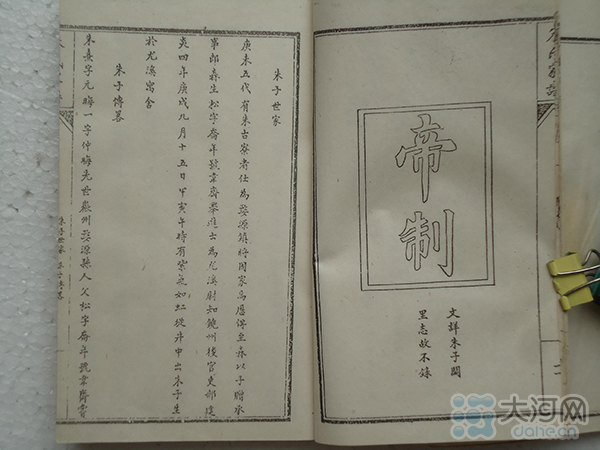 帝制
文詳朱子闕
里志故不錄
朱子世家
唐末五代有朱古寮者仕為婺源鎮將因家焉歷傳至森以子贈承
事郎森生松字喬年號韋齋舉進士為尤溪尉知饒州後官吏部建
炎四年庚戌九月十五日甲寅午時有紫氣如虹從井中出朱子生
於尤溪寓舍
朱子傳畧
朱熹字元晦一字仲晦先世徽州婺源縣人父松字喬年號韋齋嘗
朱子世家 朱子傳畧
大河网
dahe.cn